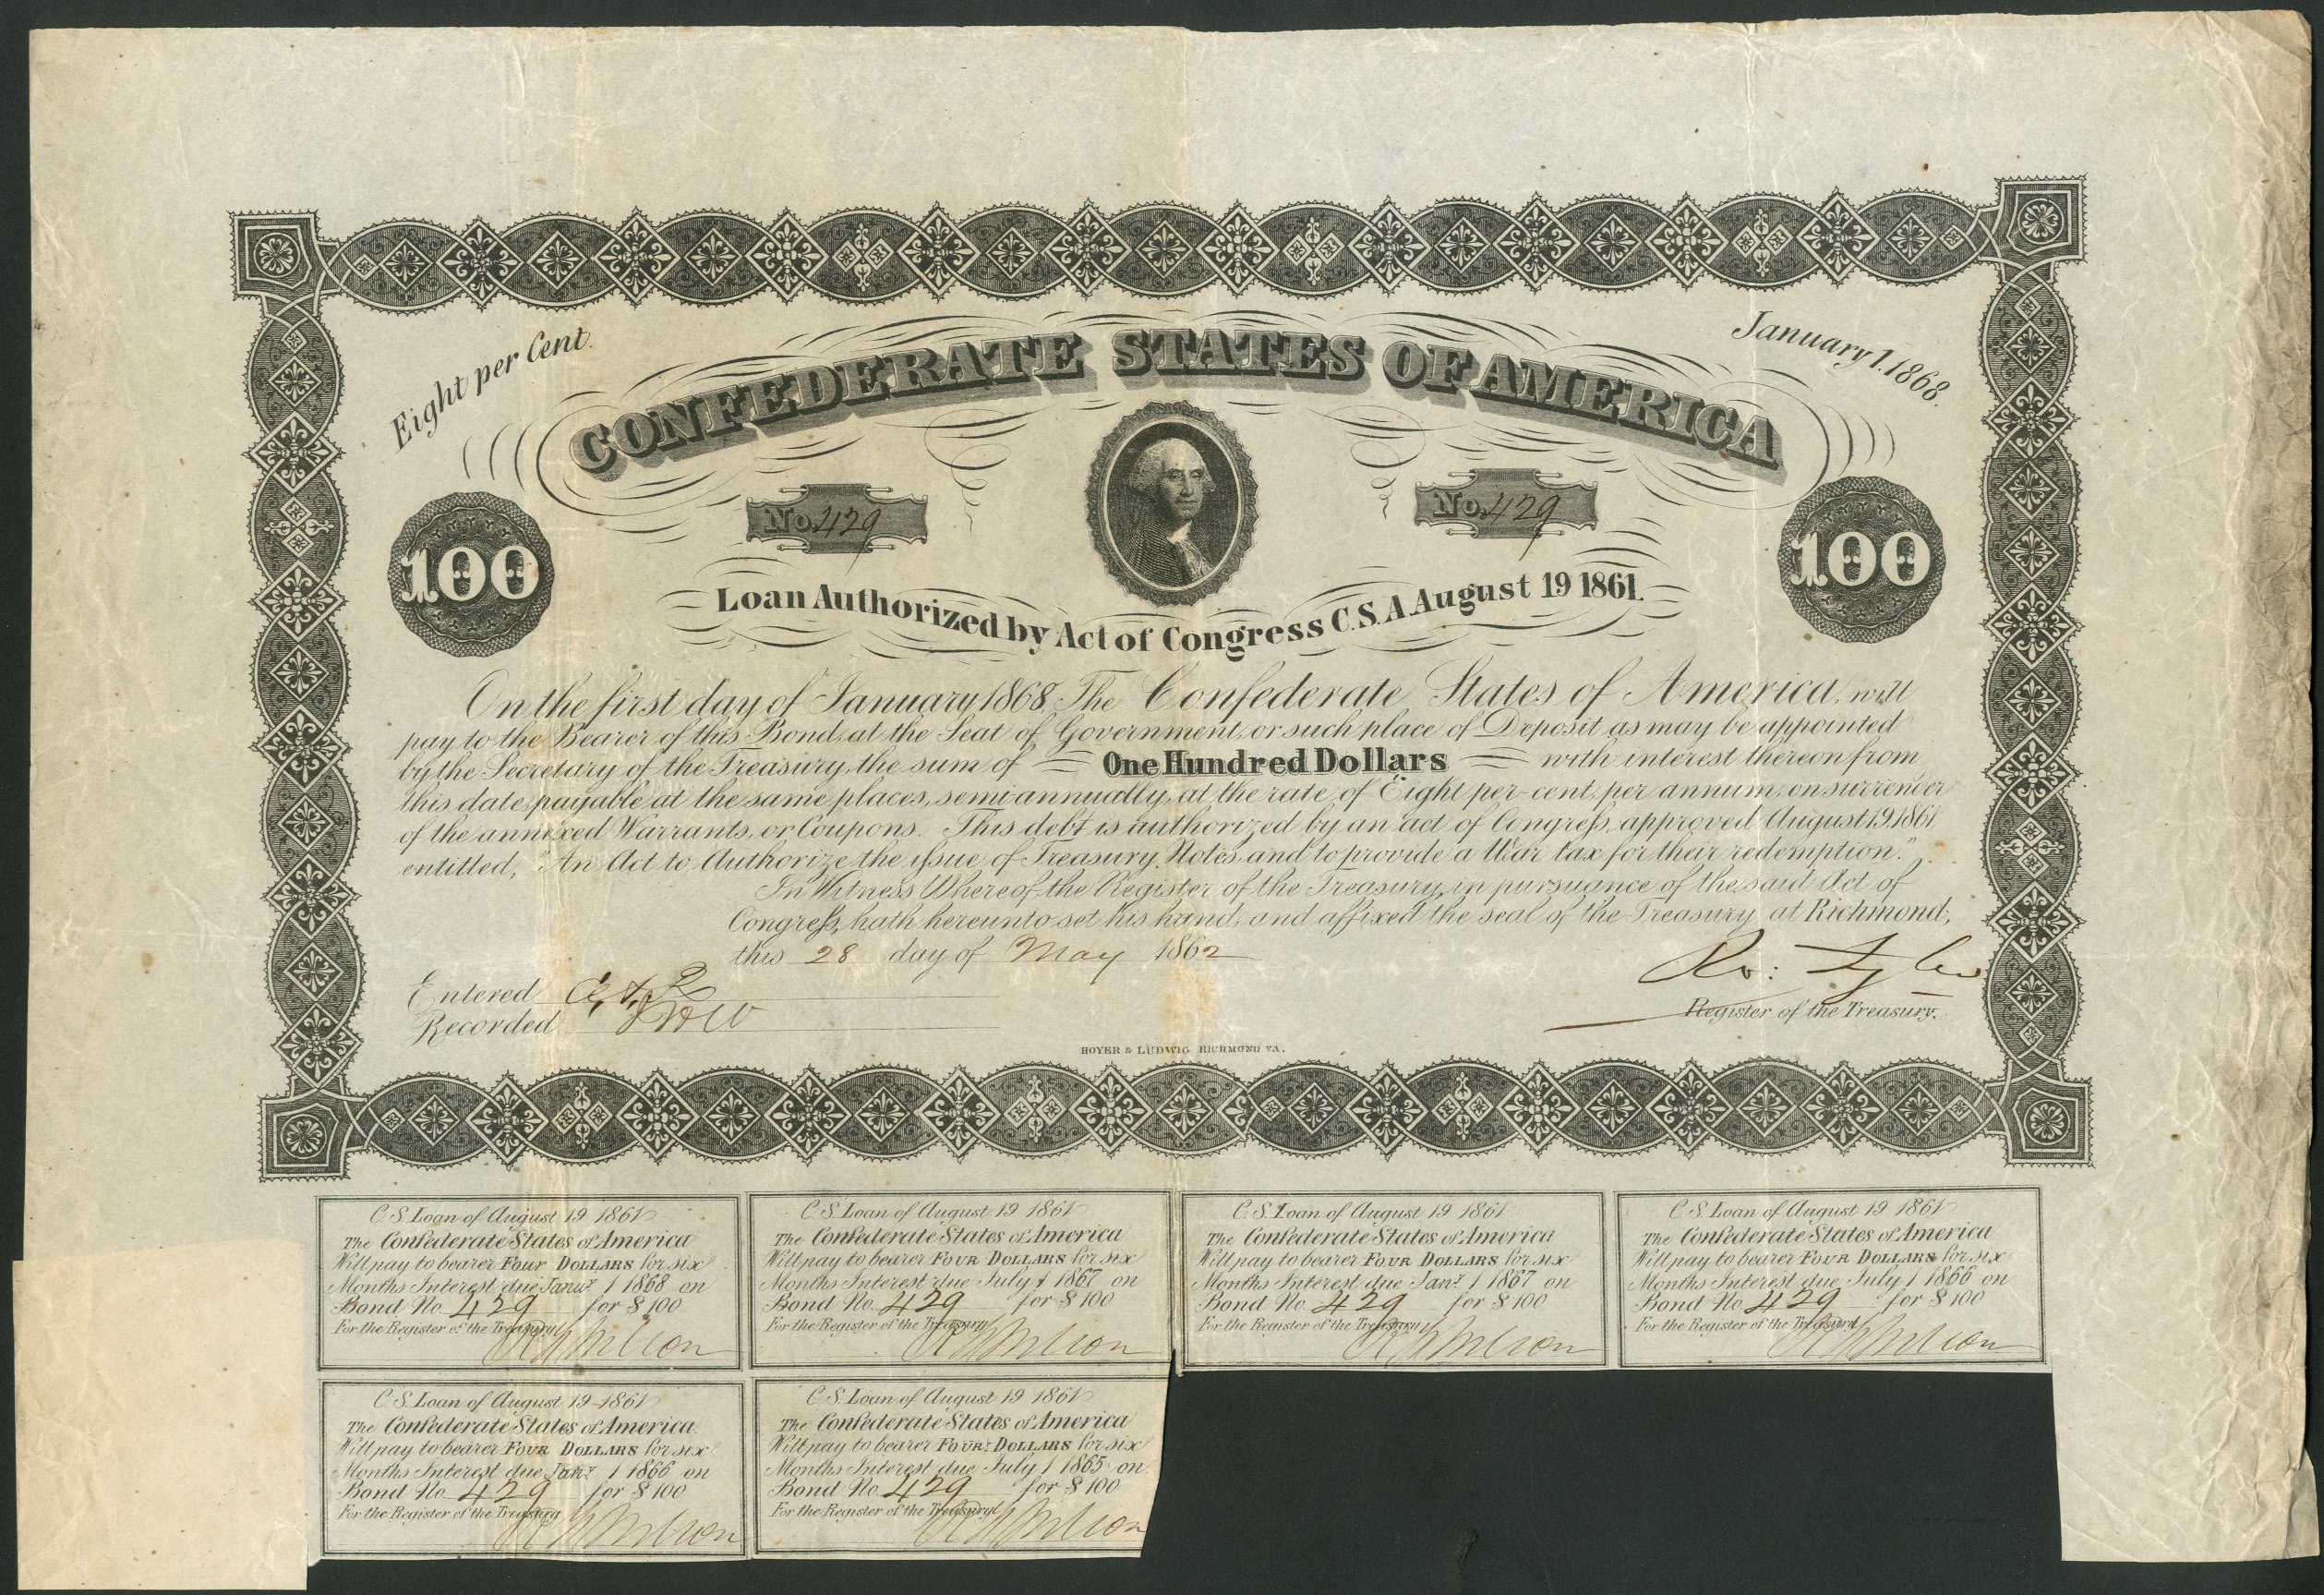 Eight per Cent.
January 1. 1868.
CONFEDERATE STATES OF AMERICA
No. 429
No. 429
100
100
Loan Authorized by Act of Congress C.S.A. August 19 1861.
On the first day of January 1868, The Confederate States of America, will
pay to the Bearer of this Bond, at the Seat of Government, or such place of Deposit as may be appointed
by the Secretary of the Treasury, the sum of One Hundred Dollars with interest thereon from
this date, payable at the same places, semi annually, at the rate of Eight per-cent, per annum, on surrender
of the annexed Warrants, or Coupons. This debt is authorized by an act of Congress, approved August 19, 1861,
entitled, "An Act to Authorize the issue of Treasury Notes, and to provide a War tax for their redemption."
In Witness Whereof, the Register of the Treasury, in pursuance of the said Act of
Congress, hath hereunto set his hand, and affixed the seal of the Treasury, at Richmond,
this 28 day of May 1862
Ro: Tyler
Entered
Register of the Treasury.
Recorded
HOYER & LUDWIG RICHMOND VA.
C. S. Loan of August 19 1861
The Confederate States of America
Will pay to bearer FOUR DOLLARS for six
Months Interest due Janu.y 1 1868 on
Bond No. 429 for $ 100
For the Register of the Treasury
C. S. Loan of August 19 1861
The Confederate States of America
Will pay to bearer FOUR DOLLARS for six
Months Interest due July 1 1867 on
Bond No. 429 for $ 100
For the Register of the Treasury
C. S. Loan of August 19 1861
The Confederate States of America
Will pay to bearer FOUR DOLLARS for six
Months Interest due Jan.y 1 1867 on
Bond No. 429 for $ 100
For the Register of the Treasury
C. S. Loan of August 19 1861
The Confederate States of America
Will pay to bearer FOUR DOLLARS for six
Months Interest due July 1 1866 on
Bond No. 429 for $ 100
For the Register of the Treasury
C. S. Loan of August 19 1861
The Confederate States of America
Will pay to bearer FOUR DOLLARS for six
Months Interest due Jan.y 1 1866 on
Bond No. 429 for $ 100
For the Register of the Treasury
C. S. Loan of August 19 1861
The Confederate States of America
Will pay to bearer FOUR DOLLARS for six
Months Interest due July 1 1865 on
Bond No. 429 for $ 100
For the Register of the Treasury